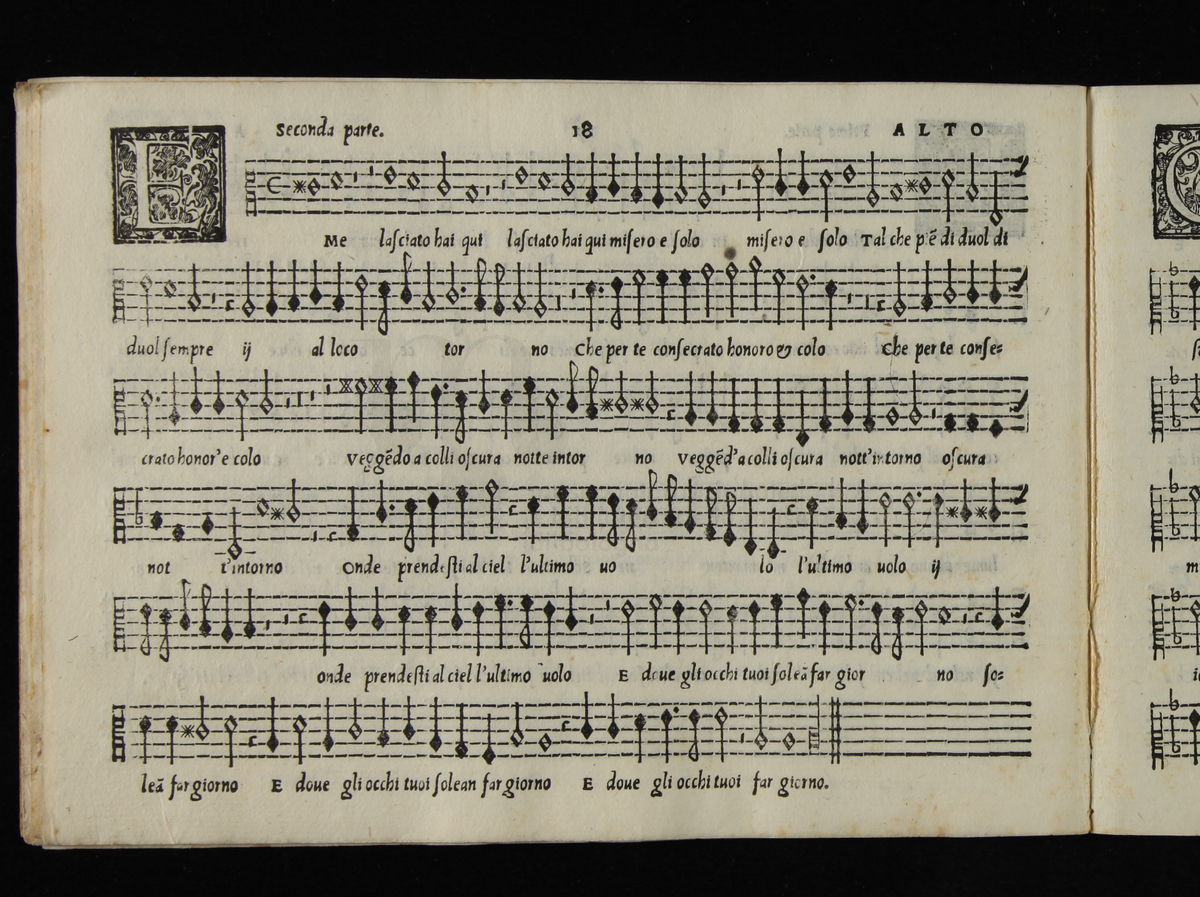 Seconda parte. 18 ALTO
E ME lasciato hai qui lasciato hai qui misero e solo misero e solo Tal che piẽ di duol di
duol sempre ij al loco tor no Che per te consecrato honoro & colo Che per te conse=
crato honor'e colo Veggẽdo a colli oscura notte intor no Veggẽd'a colli oscura nott'intorno oscura
not t'intorno Onde prendesti al ciel l'ultimo uo lo l'ultimo uolo ij
onde prendesti al ciel l'ultimo uolo E doue gli occhi tuoi soleã far gior no so=
leã far giorno E doue gli occhi tuoi solean far giorno E doue gli occhi tuoi far giorno.